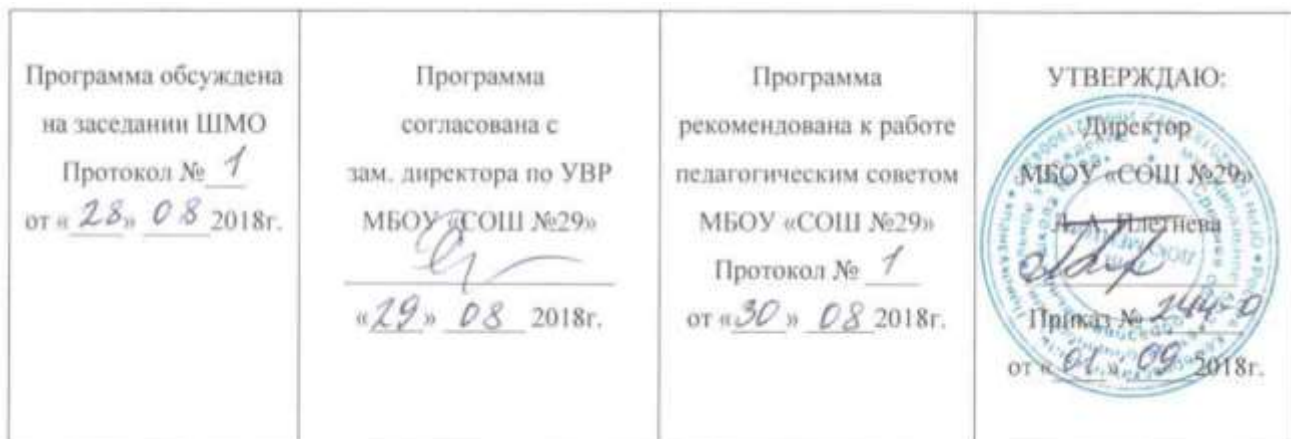 Программа обсуждена
на заседании ШМО
Протокол № 1
от « 28 » 08 2018г.
Программа
согласована с
зам. директора по УВР
МБОУ «СОШ №29»
«29» 08 2018г.
Программа
рекомендована к работе
педагогическим советом
МБОУ «СОШ №29»
Протокол № 1
от «30» 08 2018г.
УТВЕРЖДАЮ:
Директор
МБОУ «СОШ №29»
Л.А. Плетнева
Приказ № 244-О
от «01» 09 2018г.